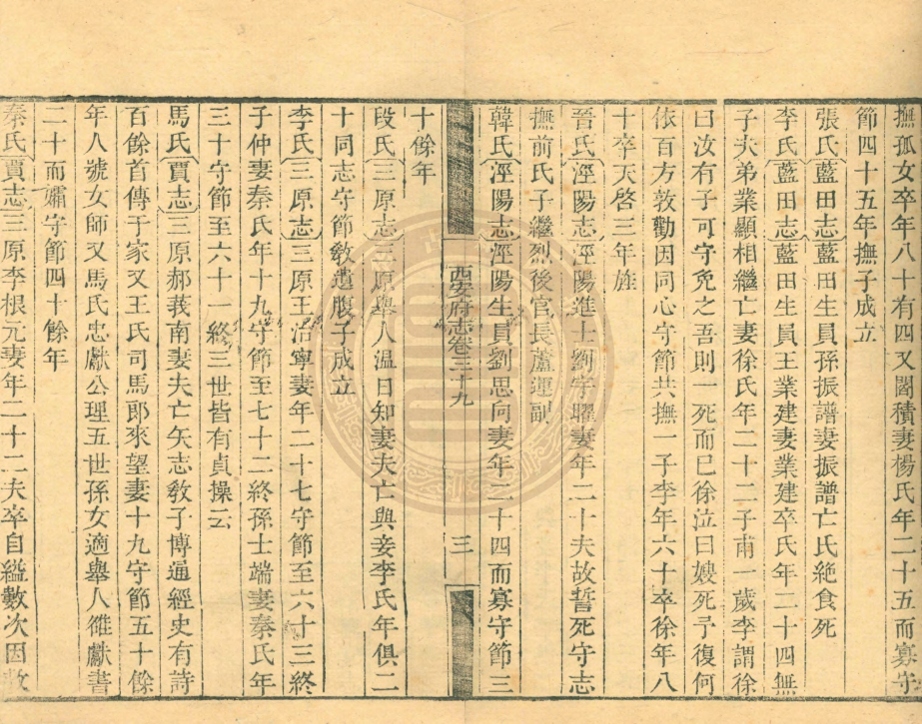 撫孤女卒年八十有四又閻積妻楊氏年二十五而寡守
節四十五年撫子成立
張氏藍田志藍田生員孫振譜妻振譜亡氏絶食死
李氏藍田志藍田生員王業建妻業建卒氏年二十四無
子夫弟業顯相繼亡妻徐氏年二十二子甫一歲李謂徐
曰汝有子可守免之吾則一死而已徐泣曰嫂死予復何
依百方敦勸因同心守節共撫一子李年六十卒徐年八
十卒天啓三年旌
晉氏涇陽志涇陽進士劉宇曜妻年二十夫故誓死守志
撫前氏子繼烈後官長蘆運副
韓氏涇陽志涇陽生員劉思向妻年二十四而寡守節三
西安府志卷三十九 三
十餘年
段氏三原志三原舉人温日知妻夫亡與妾李氏年俱二
十同志守節敎遺腹子成立
李氏三原志三原王治寧妻年二十七守節至六十三終
子仲妻秦氏年十九守節至七十二終孫士端妻秦氏年
三十守節至六十一終三世皆有貞操云
馬氏賈志三原郝莪南妻夫亡矢志敎子博通經史有詩
百餘首傳于家又王氏司馬郎來望妻十九守節五十餘
年人號女師又馬氏忠獻公理五世孫女適舉人雒獻書
二十而孀守節四十餘年
秦氏賈志三原李根元妻年二十二夫卒自縊數次因救